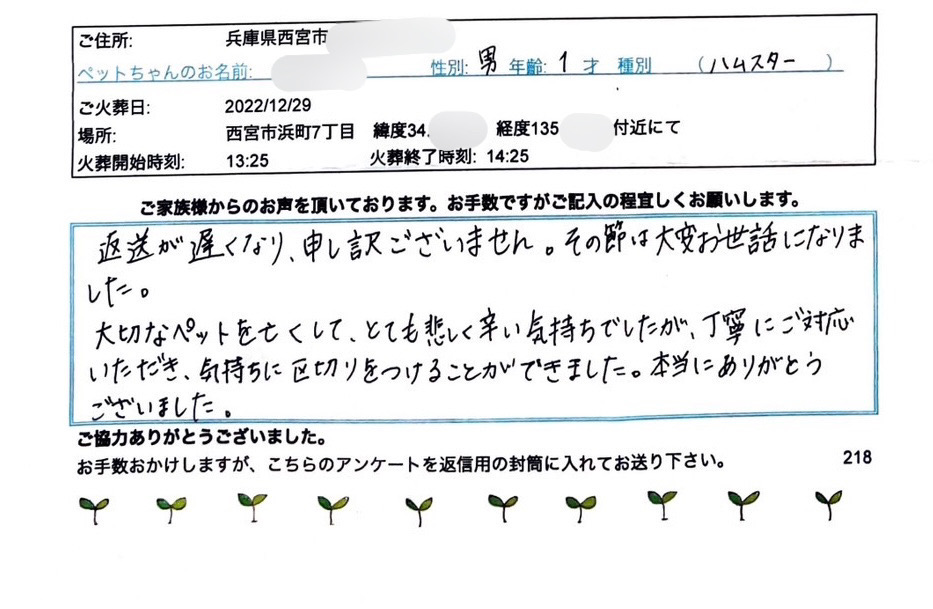 ご住所: 兵庫県西宮市
ペットちゃんのお名前: 性別: 男 年齢: 1 才 種別 (ハムスター )
ご火葬日: 2022/12/29
場所: 西宮市浜町7丁目 緯度34. 経度135 付近にて
火葬開始時刻: 13:25 火葬終了時刻: 14:25
ご家族様からのお声を頂いております。お手数ですがご記入の程宜しくお願いします。
返送が遅くなり、申し訳ございません。その節は大変お世話になりま
した。
大切なペットを亡くして、とても悲しく辛い気持ちでしたが、丁寧にご対応
いただき、気持ちに区切りをつけることができました。本当にありがとう
ございました。
ご協力ありがとうございました。
お手数おかけしますが、こちらのアンケートを返信用の封筒に入れてお送り下さい。 218